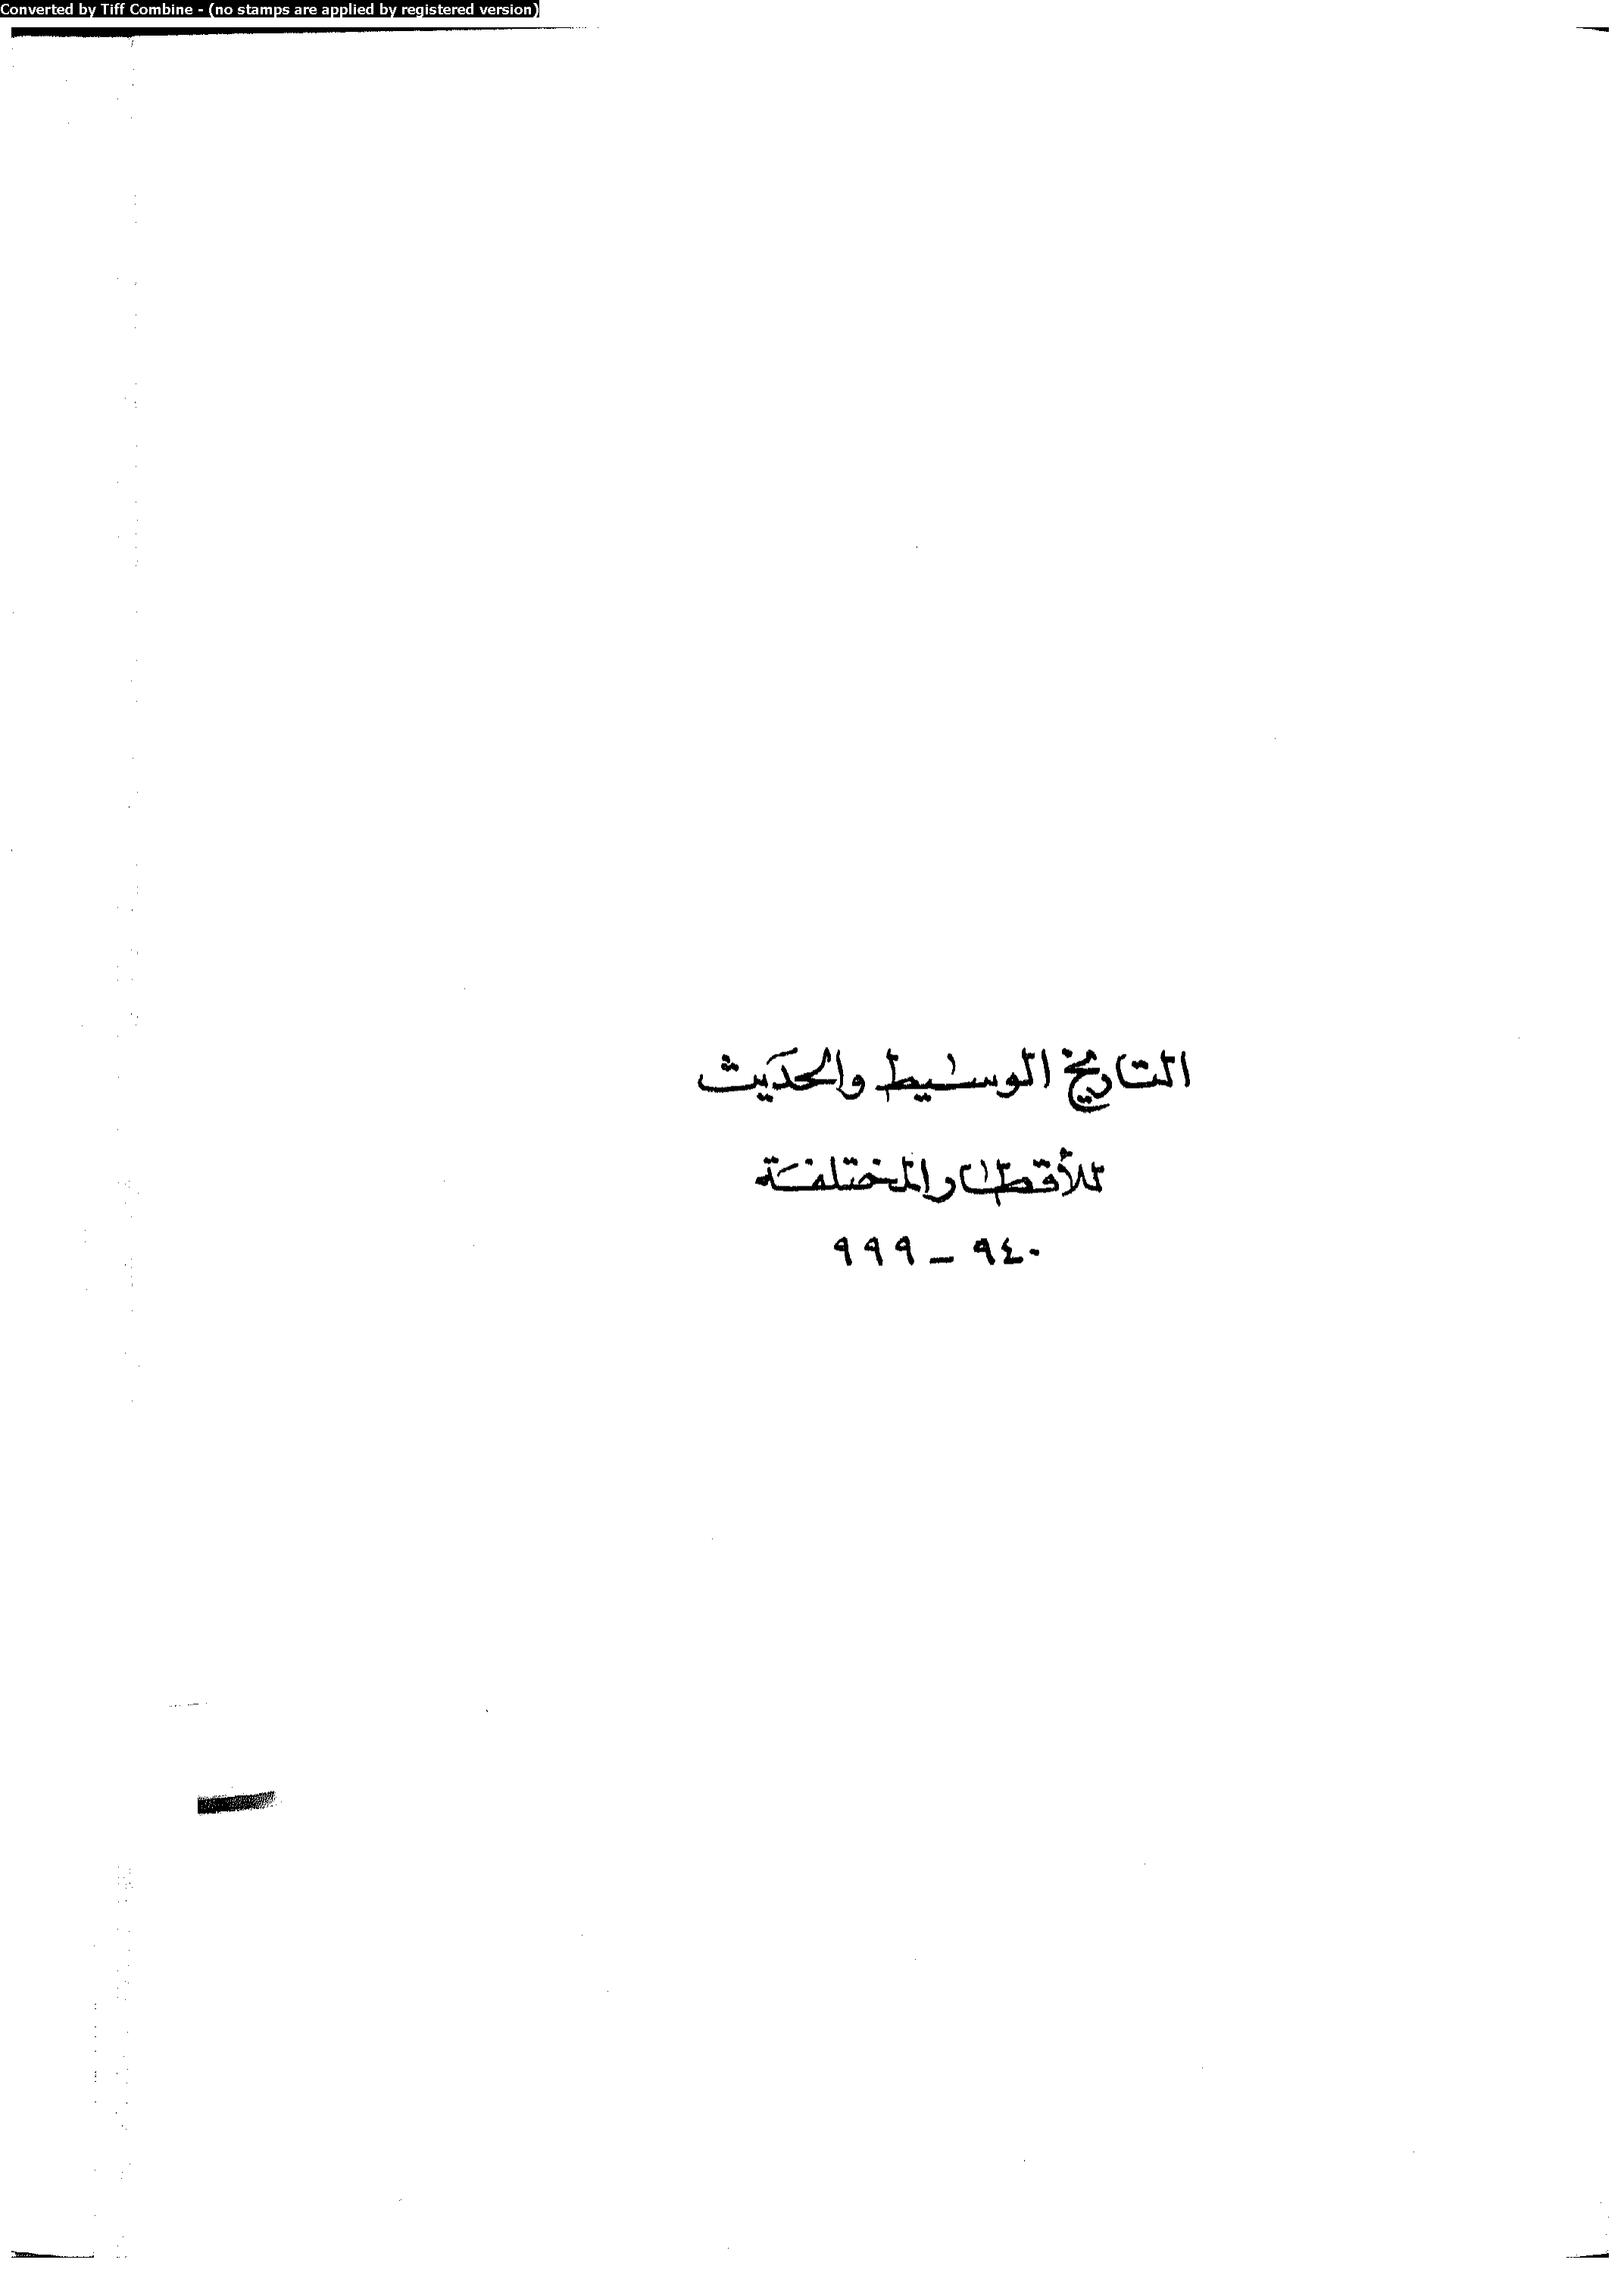 Converted by Tiff Combine - (no stamps are applied by registered version)
التاريخ الوسيط والحديث
للأقطار المختلفة
٩٤٠ - ٩٩٩